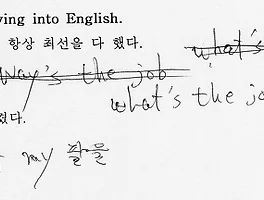 ving into English.
항상 최선을 다 했다.
what's
way's the job
what's the jo
렸다.
my 팔을